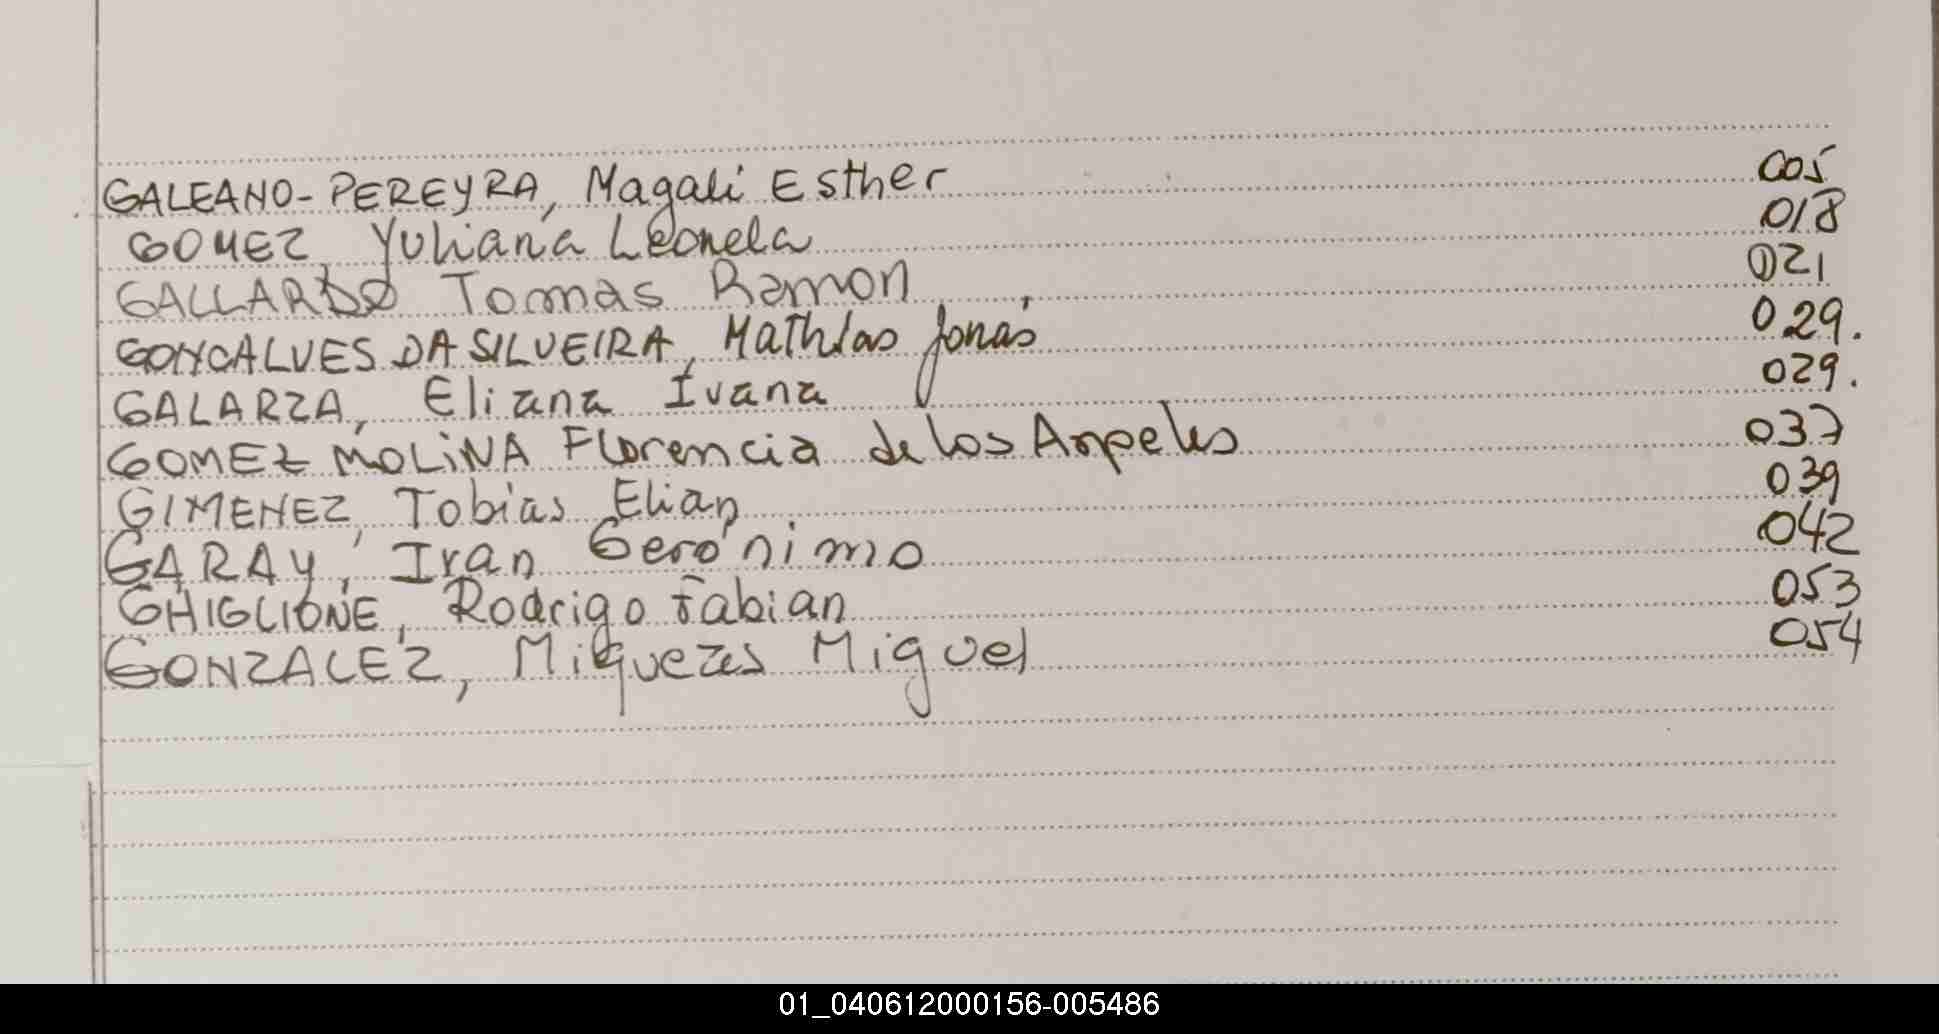 GALEANO-PEREYRA, Magali Esther 005
GOMEZ Yuliana Leonela 018
GALLARDO Tomas Ramon 021
GONCALVES DA SILVEIRA, Mathias Jonás 029.
GALARZA, Eliana Ivana 029.
GOMEZ MOLINA Florencia de los Angeles 037
GIMENEZ, Tobias Elian 039
GARAY, Ivan Gerónimo 042
GHIGLIONE, Rodrigo Fabian 053
GONZALEZ, Miqueas Miguel 054
01_040612000156-005486